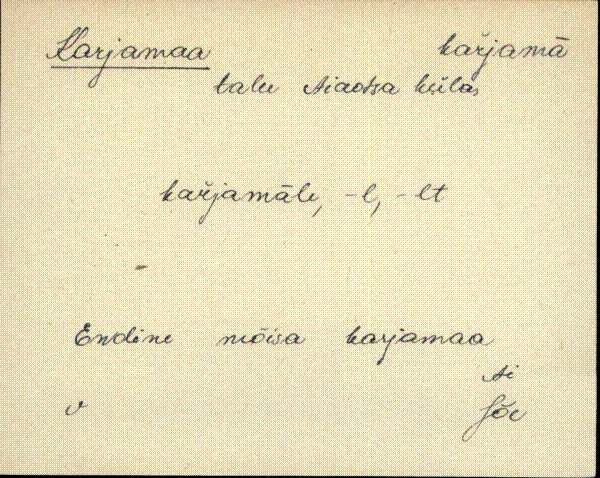 Karjamaa kařjamā
talu Aiaotsa külas
kařjamāle, -l, -lt
Endine mõisa karjamaa
Ai
v Jõe